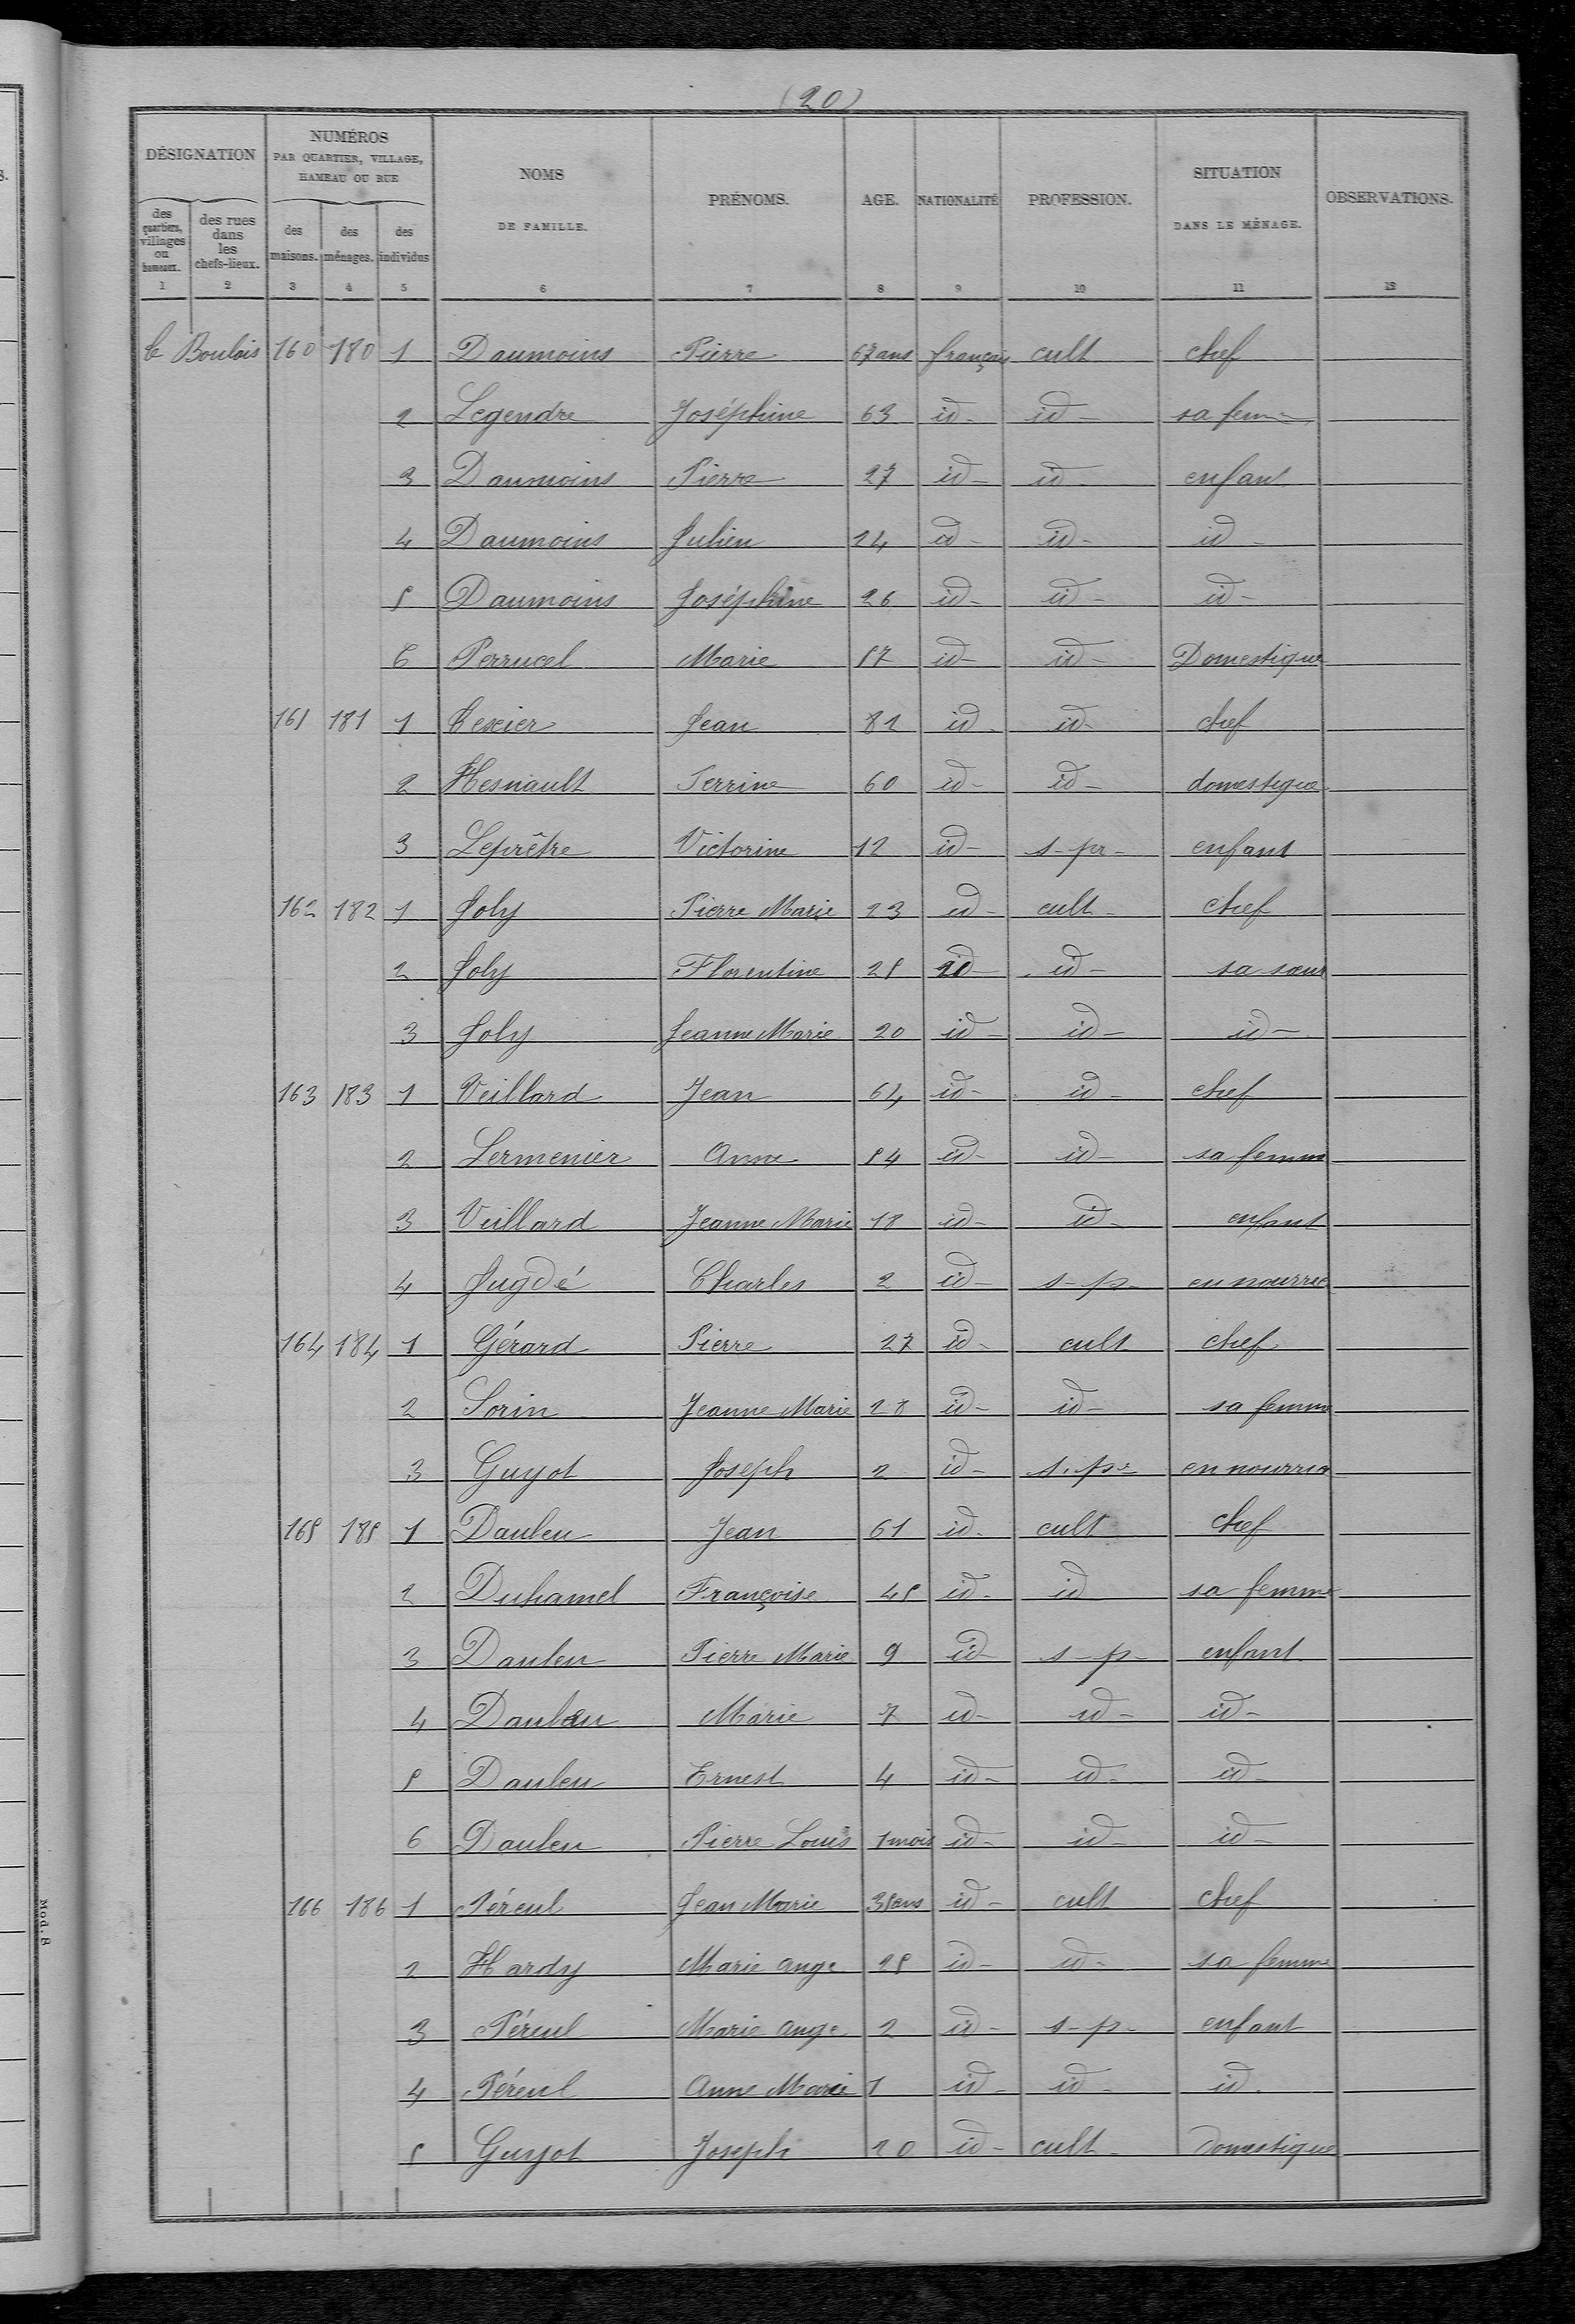 (20)
DÉSIGNATION NUMÉROS PAR QUARTIER, VILLAGE, HAMEAU OU RUE NOMS DE FAMILLE. PRÉNOMS. AGE. NATIONALITÉ PROFESSION. SITUATION DANS LE MÉNAGE. OBSERVATIONS.
des quartiers, villages ou hameaux. des rues dans les chefs-lieux. des maisons. des ménages. des individus
1 2 3 4 5 6 7 8 9 10 11 12
le Boulois 160 180 1 Daumoins Pierre 67 ans français cult chef
2 Legendre Joséphine 63 id- id- sa femme
3 Daumoins Pierre 27 id- id- enfant
4 Daumoins Julien 24 id- id- id-
5 Daumoins Joséphine 26 id- id- id-
6 Perrucel Marie 57 id- id- Domestique
161 181 1 Texier Jean 82 id- id- chef
2 Hesnault Perrine 60 id- id- domestique
3 Leprêtre Victorine 12 id- s-pr- enfant
162 182 1 Joly Pierre Marie 23 id- cult- chef
2 Joly Florentine 25 id- id- sa sœur
3 Joly Jeanne Marie 20 id- id- id-
163 183 1 Veillard Jean 64 id- id- chef
2 Lermenier Anne 54 id- id- sa femme
3 Veillard Jeanne Marie 18 id- id- enfant
4 Jugdé Charles 2 id- s-p- en nourrice
164 184 1 Gérard Pierre 27 id- cult chef
2 Sorin Jeanne Marie 28 id- id- sa femme
3 Guyot Joseph 2 id- s-pr- en nourrice
165 185 1 Dauleu Jean 61 id- cult chef
2 Duhamel Françoise 45 id- id sa femme
3 Dauleu Pierre Marie 9 id- s-p- enfant
4 Dauleu Marie 7 id- id- id-
5 Dauleu Ernest 4 id- id- id-
6 Dauleu Pierre Louis 1 mois id- id- id-
166 186 1 Péreul Jean Marie 35 ans id- cult chef
2 Hardy Marie Ange 25 id- id- sa femme
3 Péreul Marie Ange 2 id- s-p- enfant
4 Péreul Anne Marie 1 id- id- id.
5 Guyot Joseph 20 id- cult- domestique
Mod. 8